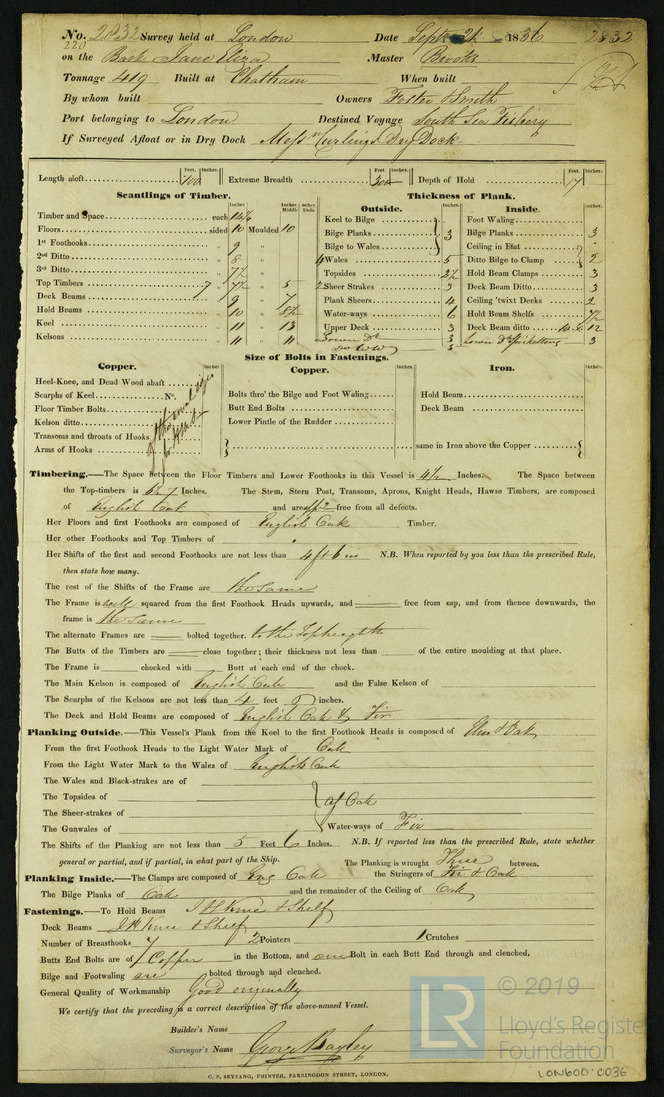 No. 2832 Survey held at London Date Sept 21 1836 2832
220
on the Bark Jane Eliza Master Brooks
Tonnage 419 Built at Chatham When built
By whom built Owners Foster & Smith
Port belonging to London Destined Voyage South Sea Fishery
If Surveyed Afloat or in Dry Dock Messrs Curlings Dry Dock
Feet. Inches. Feet Inches. Feet. Inches.
Length aloft 100 Extreme Breadth 30 Depth of Hold 17
Scantlings of Timber. Thickness of Plank.
Inches Inches Middle Inches Ends Outside. Inches. Inside. Inches.
Timber and Space each Keel to Bilge Foot Waling
Floors sided 10 Moulded 10 Bilge Planks 3 Bilge Planks 3
1st Foothooks " 9 " Bilge to Wales Ceiling in Flat
2nd Ditto " 8 " 4 Wales 5 Ditto Bilge to Clamp 2
3rd Ditto " 7½ " Topsides 2½ Hold Beam Clamps 3
Top Timbers 7 " 7½ " 5 2 Sheer Strakes 3 Deck Beam Ditto 3
Deck Beams " 9 " 7 Plank Sheers 4 Ceiling 'twixt Decks 2
Hold Beams " 10 " 8½ Water-ways 6 Hold Beam Shelfs 7½
Keel " 11 " 13 Upper Deck 3 Deck Beam ditto 12
Kelsons " 11 " 11 Lower Dk 3 Lower Dk Spirketting 3
Do WW 3
Size of Bolts in Fastenings.
Copper. Inches Copper. Inches. Iron. Inches.
Heel-Knee, and Dead Wood abaft
Scarphs of Keel No. Bolts thro' the Bilge and Foot Waling Hold Beam
Floor Timber Bolts Butt End Bolts Deck Beam
Kelson ditto Lower Pintle of the Rudder
Transoms and throats of Hooks
Arms of Hooks same in Iron above the Copper
Timbering.—The Space between the Floor Timbers and Lower Foothooks in this Vessel is 4½ Inches. The Space between
the Top-timbers is 6 & 7 Inches. The Stem, Stern Post, Transoms, Aprons, Knight Heads, Hawse Timbers, are composed
of English Oak and are free from all defects.
Her Floors and first Foothooks are composed of English Oak Timber.
Her other Foothooks and Top Timbers of "
Her Shifts of the first and second Foothooks are not less than 4 ft 6 in N.B. When reported by you less than the prescribed Rule,
then state how many.
The rest of the Shifts of the Frame are the same
The Frame is well squared from the first Foothook Heads upwards, and free from sap, and from thence downwards, the
frame is the same
The alternate Frames are bolted together. to the Topheighth
The Butts of the Timbers are close together; their thickness not less than of the entire moulding at that place.
The Frame is chocked with Butt at each end of the chock.
The Main Kelson is composed of English Oak and the False Kelson of
The Scarphs of the Kelsons are not less than 4 feet inches.
The Deck and Hold Beams are composed of English Oak & Fir
Planking Outside.—This Vessel's Plank from the Keel to the first Foothook Heads is composed of Elm & Oak
From the first Foothook Heads to the Light Water Mark of Oak
From the Light Water Mark to the Wales of English Oak
The Wales and Black-strakes are of
The Topsides of of Oak
The Sheer-strakes of
The Gunwales of Water-ways of Fir
The Shifts of the Planking are not less than 5 Feet 6 Inches. N.B. If reported less than the prescribed Rule, state whether
general or partial, and if partial, in what part of the Ship. The Planking is wrought Three between.
Planking Inside.—The Clamps are composed of Eng Oak the Stringers of Fir & Oak
The Bilge Planks of Oak and the remainder of the Ceiling of Oak
Fastenings.—To Hold Beams I H Knee & Shelf
Deck Beams I H Knee & Shelf
Number of Breasthooks 7 2 Pointers 1 Crutches
Butts End Bolts are of Copper in the Bottom, and one Bolt in each Butt End through and clenched,
Bilge and Footwaling are bolted through and clenched.
General Quality of Workmanship Good originally
We certify that the preceding is a correct description of the above-named Vessel.
Builder's Name
Surveyor's Name George Bayley
C. F. SEYFANG, PRINTER, FARRINGDON STREET, LONDON.
LR © 2019
Lloyd's Register
Foundation
LON600-0036